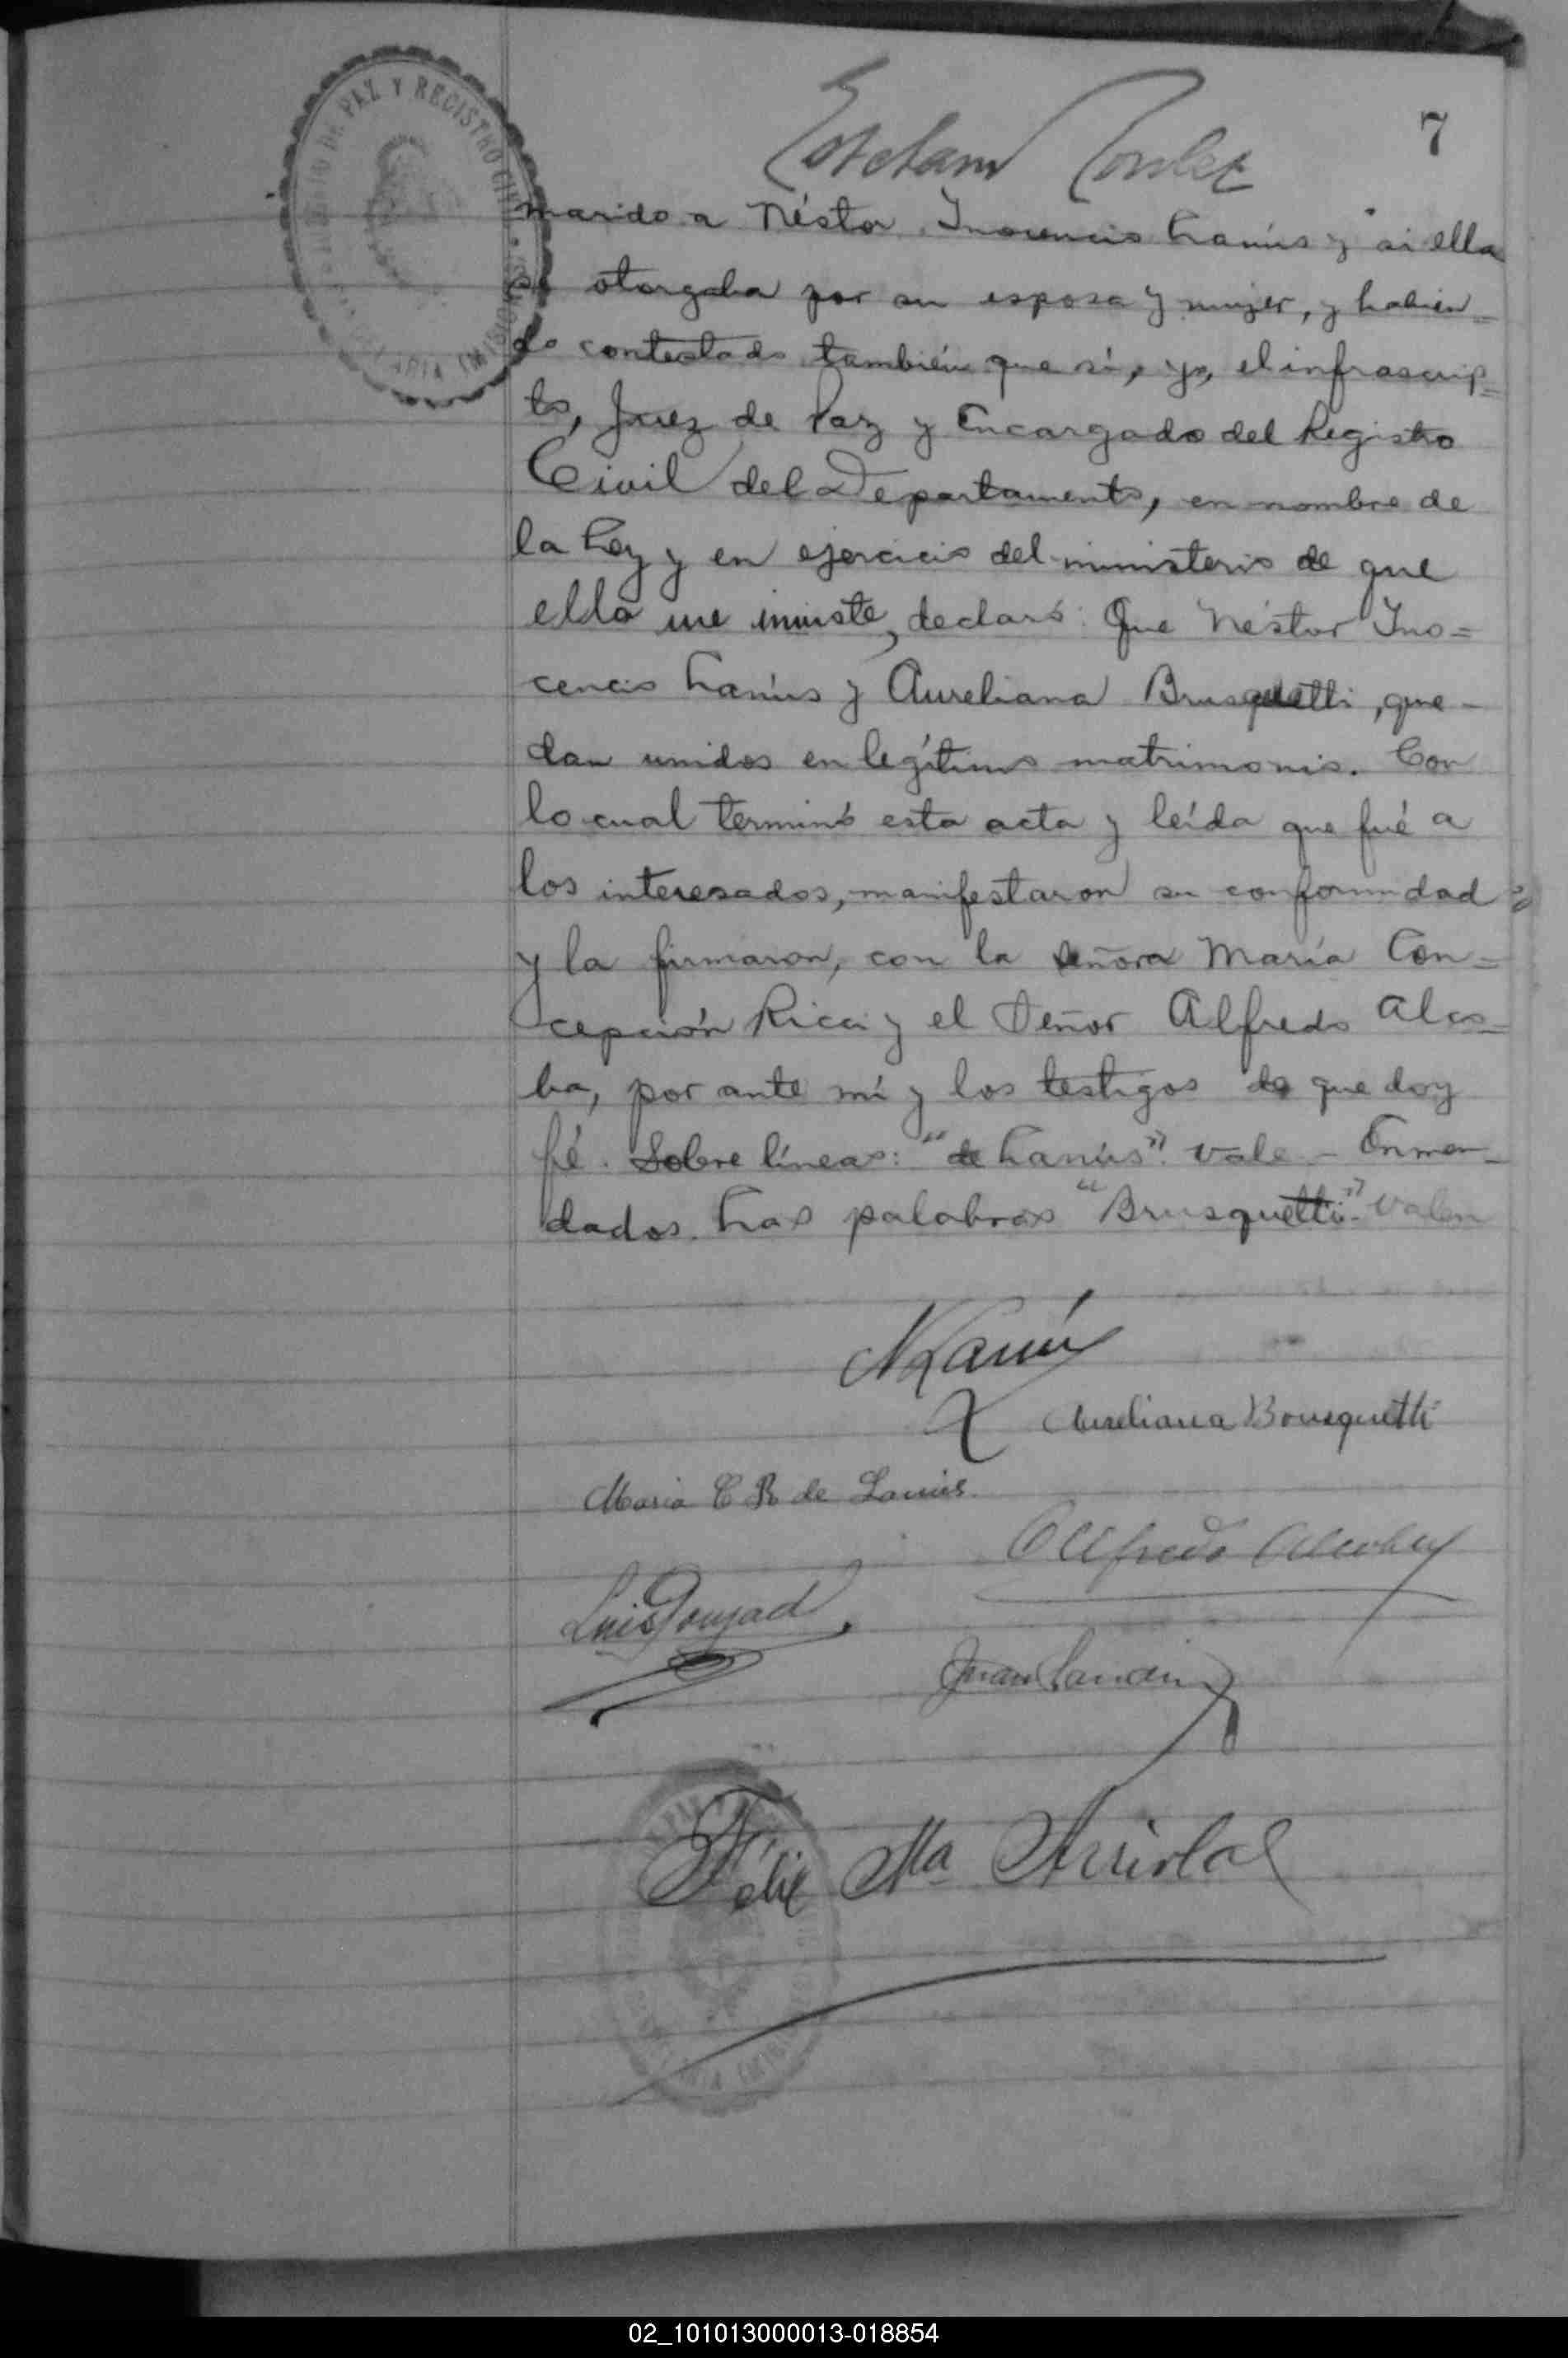 7
marido a Néstor Inocencio Lanús y si ella
se otorgaba por su esposa y mujer, y habien=
do contestado también que sí, yo, el infrascrip=
to, Juez de Paz y Encargado del Registro
Civil del Departamento, en nombre de
la Ley y en ejercicio del ministerio de que
ella me inviste, declaró: Que Néstor Ino=
cencio Lanús y Aureliana Brusquetti, que-
dan unidos en legítimo matrimonio. Con
lo cual terminó esta acta y leída que fué a
los interesados, manifestaron su conformidad
y la firmaron, con la señora María Con=
cepción Ricci y el Señor Alfredo Alco=
ba, por ante mí y los testigos de que doy
fé. Sobre líneas: "de Lanús". Vale - Enmen-
dados. Las palabras "Brusquetti" Valen
NLanús
Aureliana Bousquetti
Maria C R de Lanús.
Alfredo Alcoba
Luis
Juan
Félix Ma Arriola
JUZGADO DE PAZ Y REGISTRO CIVIL
02_101013000013-018854